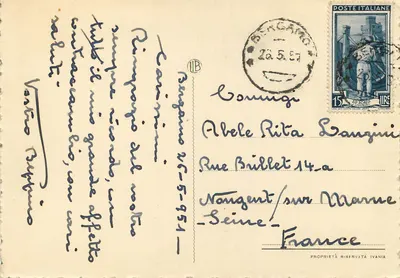 Bergamo 26-5-951-
Carissimi
Ringrazio del vostro
sempre ricordo, con
tutto il mio grande affetto
contraccambio, con cari
saluti
Vostro Beppino
POSTE ITALIANE
15 LIRE
BERGAMO
26.5.51
Coniugi
Abele Rita Lanzini
Rue Brillet 14-a
Nongent/sur Marne
-Seine-
France
PROPRIETÀ RISERVATA